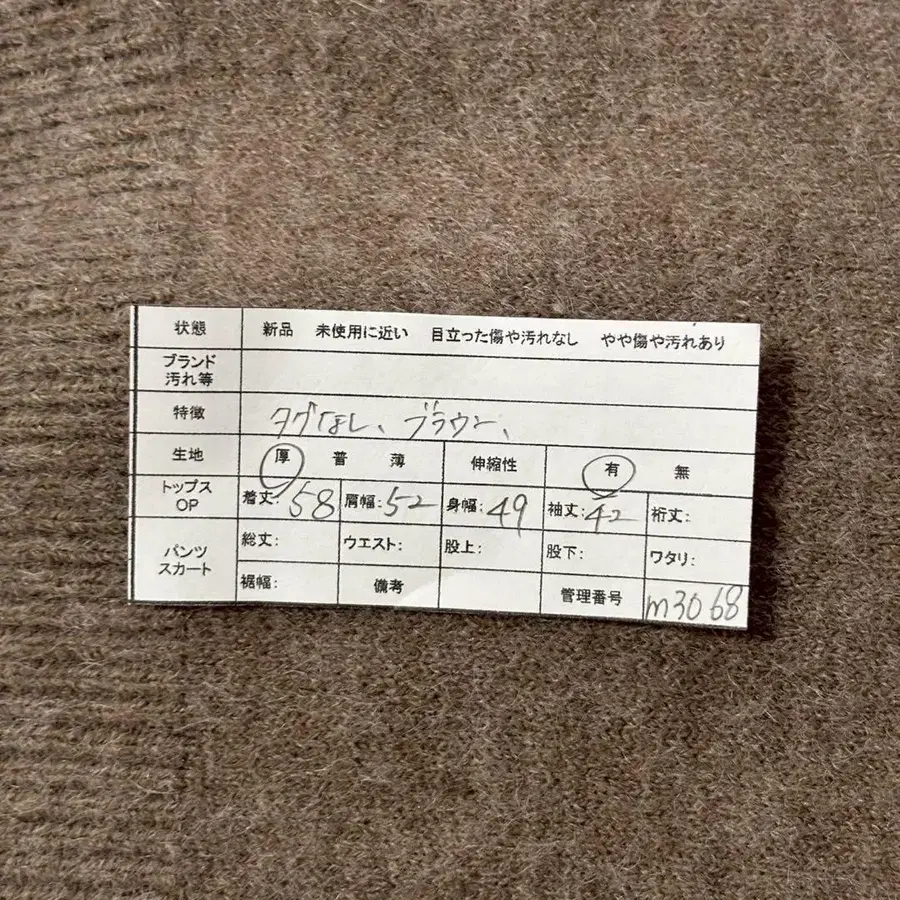 状態 新品 未使用に近い 目立った傷や汚れなし やや傷や汚れあり
ブランド
汚れ等
特徴 タグなし、ブラウン、
生地 厚 普 薄 伸縮性 有 無
トップス
OP
着丈:58 肩幅:52 身幅:49 袖丈:42 裄丈:
パンツ
スカート
総丈: ウエスト: 股上: 股下: ワタリ:
裾幅: 備考 管理番号 m3068